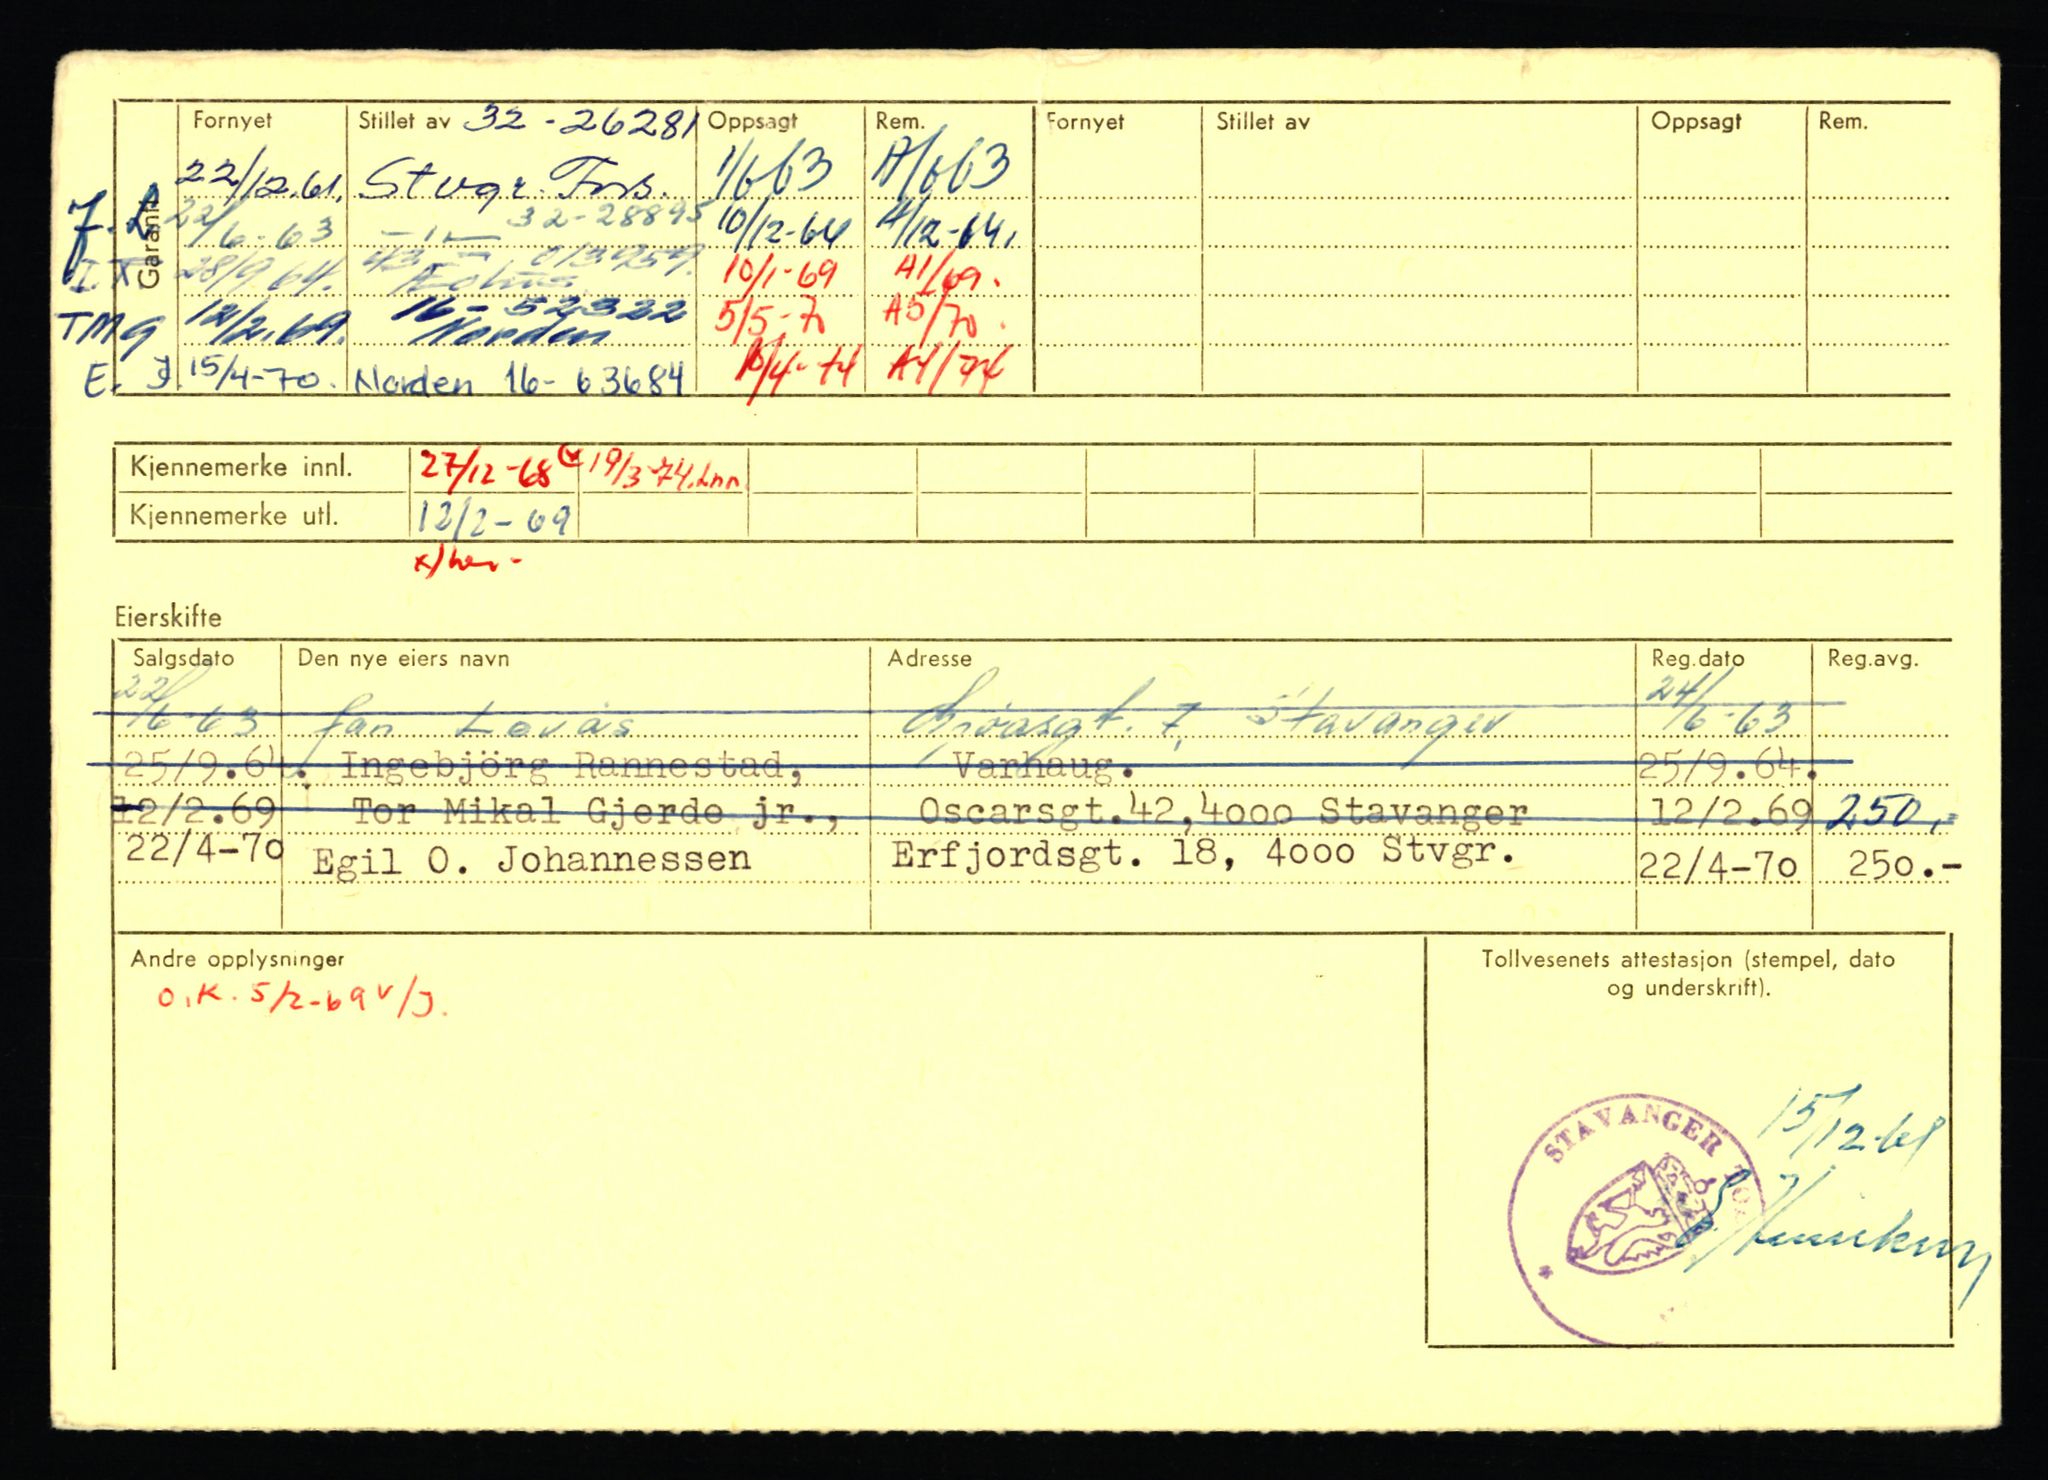 Garanti
Fornyet Stillet av 32-26281 Oppsagt Rem. Fornyet Stillet av Oppsagt Rem.
22/12.61. Stvgr. Fors. 1/6 63 A/6 63
J. L 22/6-63 32-28895 10/12-64 A/12-64.
28/9 64. 10/1-69 A1/69.
TMG 12/2.69. 16-52322 Norden 5/5-70 A5/70.
E. J. 15/4-70. Norden 16-63684 10/4-74 A4/74
Kjennemerke innl. 27/12-68 19/3-74. Lnn.
Kjennemerke utl. 12/2-69
Eierskifte
Salgsdato Den nye eiers navn Adresse Reg.dato Reg.avg.
22/6-63 Jan Lovås 7, Stavanger 24/6-63
25/9.64. Ingebjörg Rannestad, Varhaug. 25/9.64.
12/2.69 Tor Mikal Gjerde jr., Oscarsgt.42,4000 Stavanger 12/2.69 250.-
22/4-70 Egil O. Johannessen Erfjordsgt. 18, 4000 Stvgr. 22/4-70 250.-
Andre opplysninger
O.K. 5/2-69 V/J.
Tollvesenets attestasjon (stempel, dato
og underskrift).
15/12-61
STAVANGER